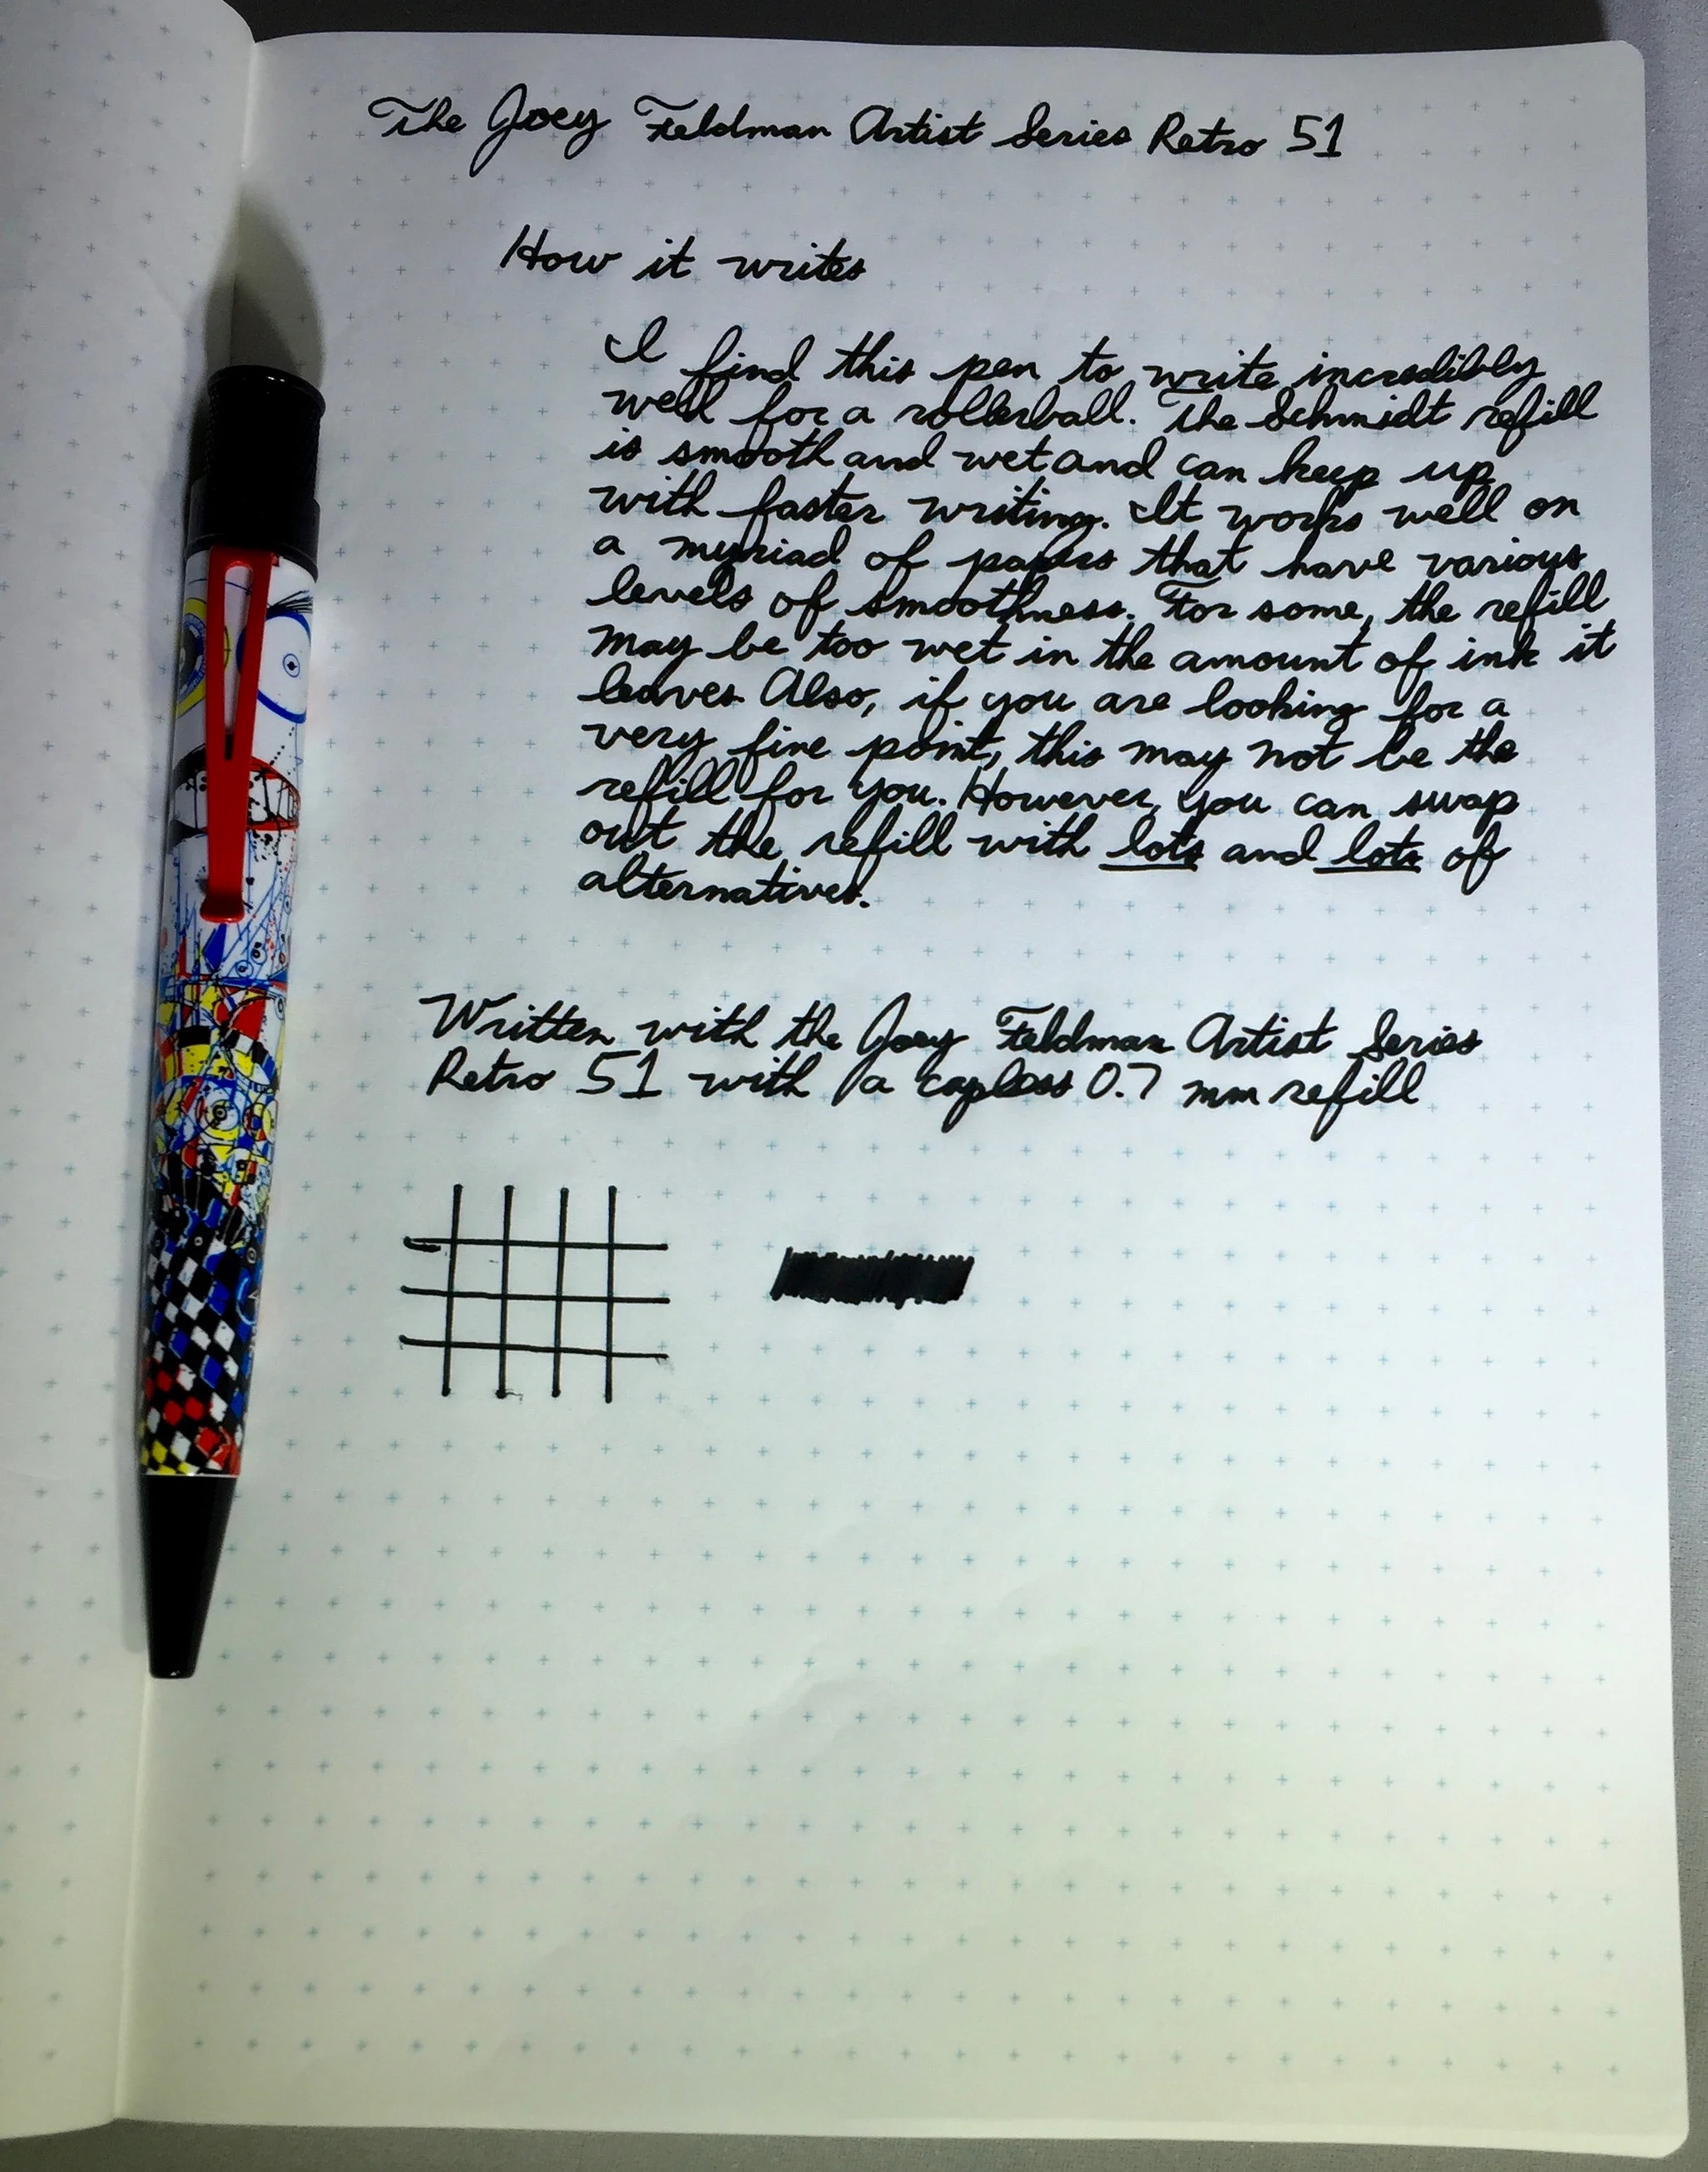 The Joey Feldman Artist Series Retro 51
How it writes
I find this pen to write incredibly
well for a rollerball. The Schmidt refill
is smooth and wet and can keep up
with faster writing. It works well on
a myriad of papers that have various
levels of smoothness. For some, the refill
may be too wet in the amount of ink it
leaves. Also, if you are looking for a
very fine point, this may not be the
refill for you. However, you can swap
out the refill with lots and lots of
alternatives.
Written with the Joey Feldman Artist Series
Retro 51 with a capless 0.7 mm refill